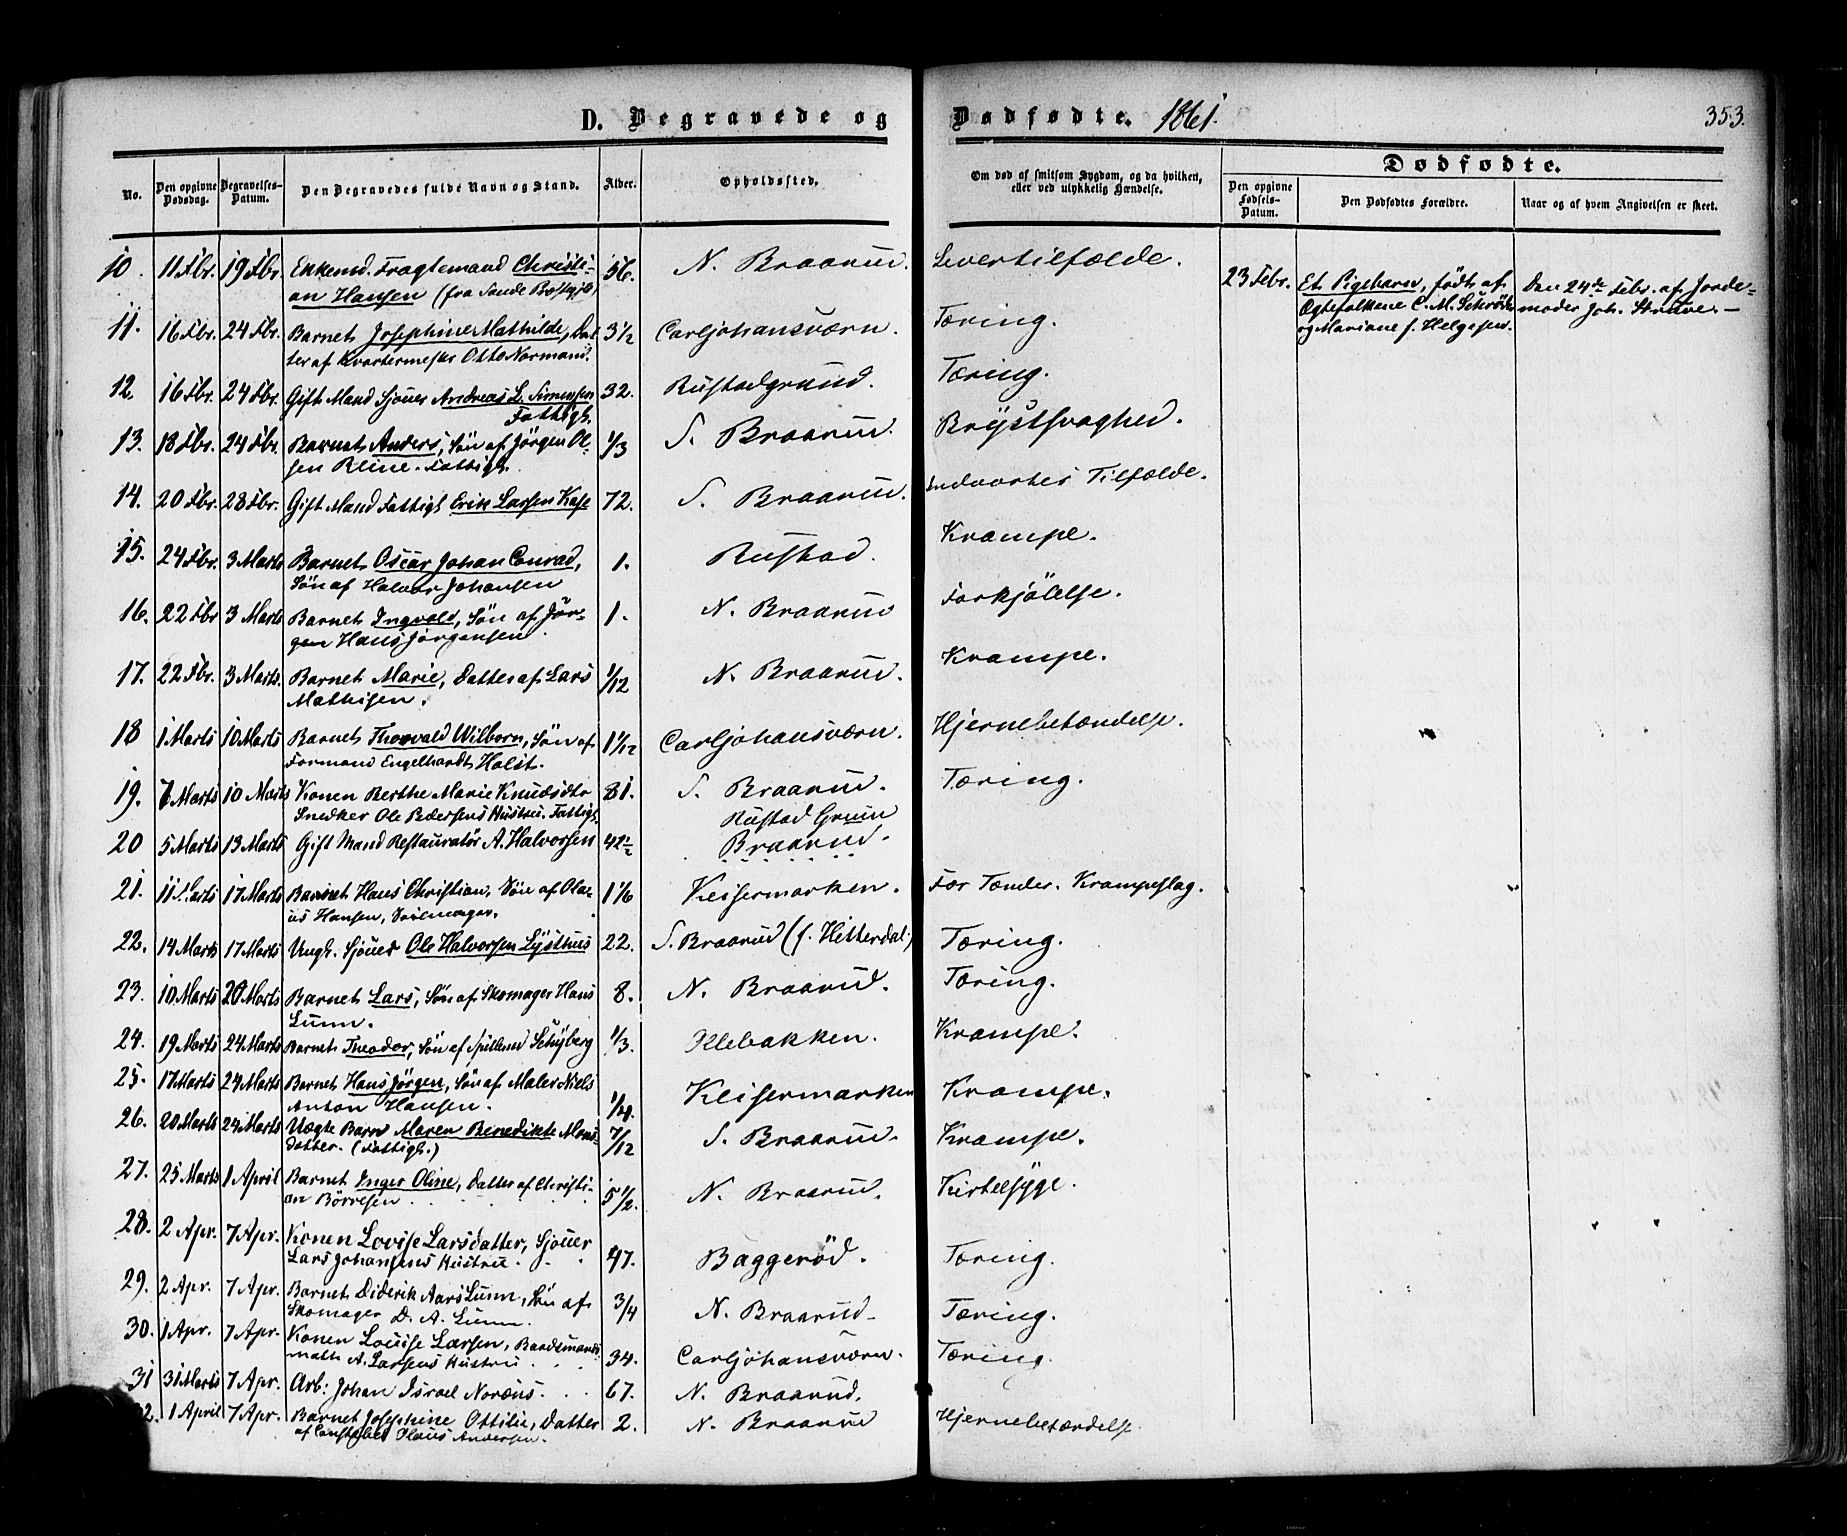 D. Begravede og Dødfødte. 1861. 353.
Dødfødte.
No. Den opgivne Dødsdag. Begravelses-Datum. Den Begravedes fulde Navn og Stand. Alder. Opholdssted. Om død af smitsom Sygdom, og da hvilken, eller ved ulykkelig Hændelse. Den opgivne Fødsels-Datum. Den Dødfødtes Forældre. Naar og af hvem Angivelsen er skeet.
10. 11 Fbr. 19 Fbr. Enkemd. Fragtemand Christi- 56. N. Braarud. Levertilfælde. 23 Febr. Et Pigebarn, født af Den 24de Febr. af Jorde-
an Hansen (fra Sande Præstgjeld) Egtefolkene C. M. Schrøder moder Joh. Struve.
og Mariane f. Helgesen.
11. 16 Fbr. 24 Fbr. Barnet Josephine Mathilde, Dat- 3 1/2 Carljohansværn. Tæring.
ter af Kvartermester Otto Normand.
12. 16 Fbr. 24 Fbr. Gift Mand Sjöuer Andreas L. Simensen 32. Rustadgrund. Tæring.
Fattigl.
13. 18 Fbr. 24 Fbr. Barnet Anders, Sön af Jörgen Ol- 1/3 S. Braarud. Brystsvaghed.
sen Fattigl.
14. 20 Fbr. 28 Fbr. Gift Mand Fattigl Erik Larsen 72. S. Braarud. Indvortes Tilfælde.
15. 24 Fbr. 3 Marts Barnet Oscar Johan Conrad, 1. Rustad. Krampe.
Sön af Halvor Johansen
16. 22 Fbr 3 Marts Barnet Ingvald, Sön af Jör- 1. N. Braarud Forkjölelse.
gen Hans Jörgensen.
17. 22 Fbr. 3 Marts. Barnet Marie, Datter af Lars 1/12 N. Braarud. Krampe.
Mathisen.
18 1 Marts 10 Marts Barnet Thorvald Wilborn, Sön af 1 1/12 Carljohansværn. Hjernebetændelse.
Formand Engelhardt Holst.
19. 7 Marts 10 Marts Konen Berthe Marie Knudsdtr 81. S. Braarud. Tæring.
Snedker Ole Pedersens Hustru. Fattigl.
20 5 Marts 13 Marts Gift Mand Restauratör A. Halvorsen 42 1/2 Rustad Grunn
Braarud.
21. 11 Marts 17 Marts Barnet Hans Christian, Sön af Ola- 1 1/6 Keisermarken. Før Tænder. Krampeslag.
us Hansen, Seilmager.
22. 14 Marts 17 Marts Ungk. Sjöued Ole Halvorsen Lysthus 22. S. Braarud (f. Hitterdal) Tæring.
23. 10 Marts 20 Marts Barnet Lars, Sön af Skomager Hans 8. N. Braarud. Tæring.
Lunn.
24. 19 Marts 24 Marts Barnet Theodor, Sön af Spillemd Schyberg 1/3. Ilebakken. Krampe.
25. 17 Marts 24 Marts Barnet Hans Jörgen, Sön af Maler Niels 1/4. Keisermarken Krampe.
Anton Hansen.
26. 20 Marts 24 Marts Uægte Barn Maren Benedikte Mons- 7/12 S. Braarud. Krampe.
datter. (Fattigl.)
27. 25 Marts 1 April Barnet Inger Oline, Datter af Christi- 5 1/2. N. Braarud. Kirtelsyge.
an Börresen
28. 2 Apr. 7 Apr. Konen Lovise Larsdatter, Sjöuer 47. Baggeröd. Tæring.
Lars Johansens Hustru.
29. 2 Apr. 7 Apr. Barnet Diderik Aars Lunn, Sön af 3/4 N. Braarud. Tæring.
Skomager D. A. Lunn.
30. 1 Apr. 7 Apr. Konen Louise Larsen, Baadsmands- 34. Carljohansværn. Tæring.
math A. Larsens Hustru
31 31 Marts 7 Apr. Arb: Johan Israel Noræus. 67. N. Braarud.
32. 1 April 7 Apr. Barnet Josephine Ottilie, Datter 2. N. Braarud Hjernebetændelse
af Constabel Andersen.